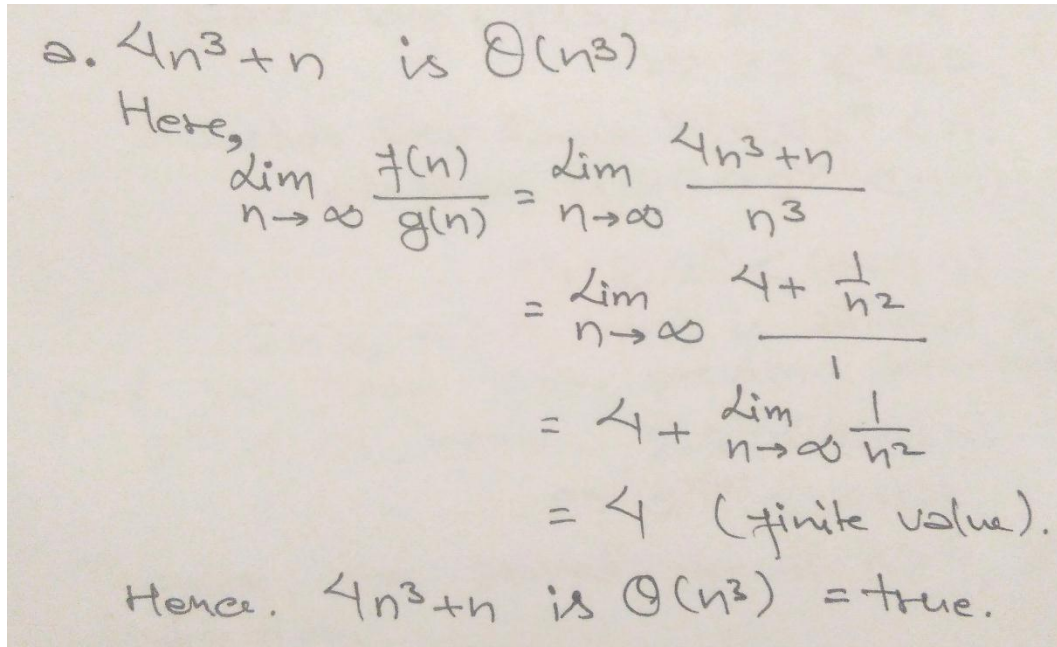 a. 4n³+n is Θ(n³)
Here,
Lim n→∞ f(n)/g(n) = Lim n→∞ (4n³+n)/n³
= Lim n→∞ (4 + 1/n²)/1
= 4 + Lim n→∞ 1/n²
= 4 (finite value).
Hence. 4n³+n is Θ(n³) = true.